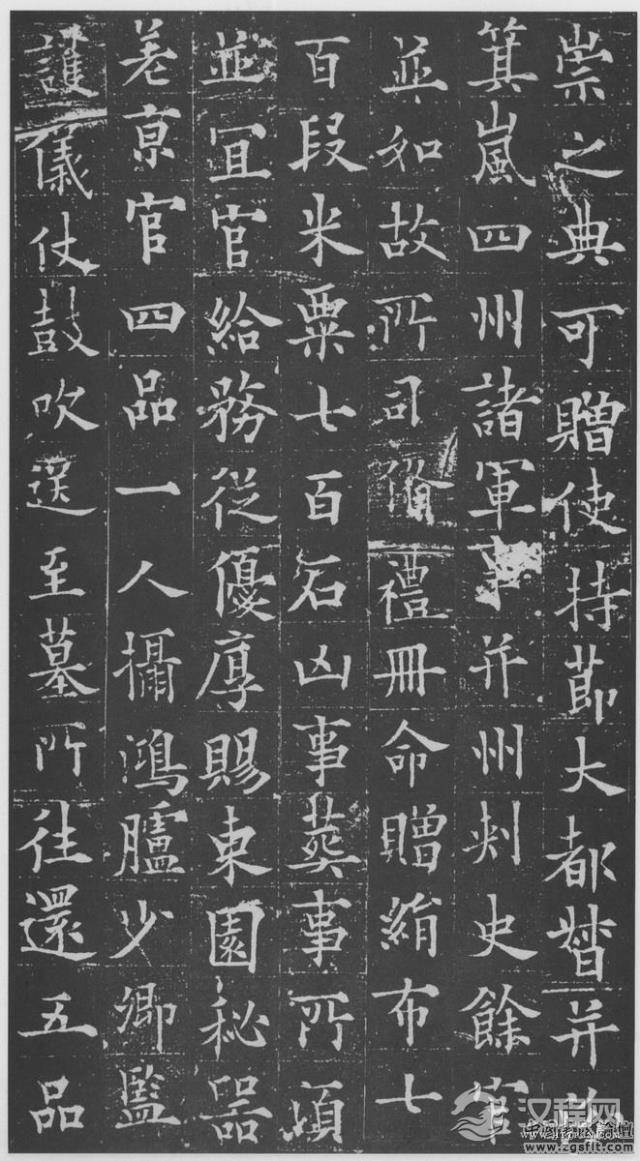 崇之典可贈使持節大都督并
箕嵐四州諸軍事并州刾史餘官
並如故所司俻禮冊命贈絹布七
百段米粟七百石凶事葬事所湏
並宜官給務從優厚賜東園秘器
差京官四品一人攝鴻臚少卿監
護儀仗鼓吹送至墓所往還五品
汉程网
www.zgsflt.com